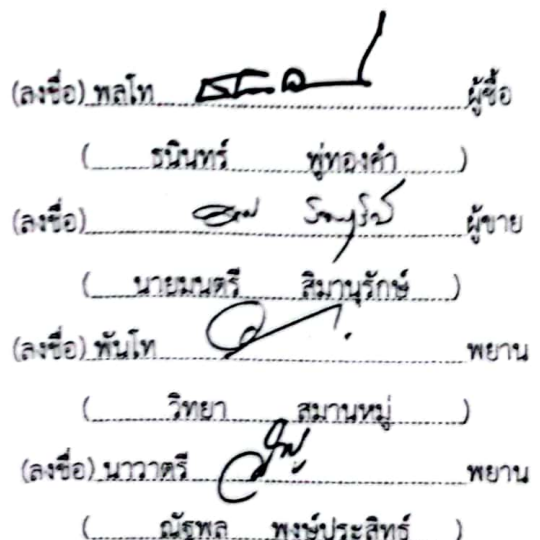 (ลงชื่อ) พลโท ผู้ซื้อ
( ธนินทร์ พู่ทองคำ )
(ลงชื่อ) ผู้ขาย
( นายมนตรี สิมานุรักษ์ )
(ลงชื่อ) พันโท พยาน
( วิทยา สมานหมู่ )
(ลงชื่อ) นาวาตรี พยาน
( ณัฐพล พงษ์ประสิทธิ์ )